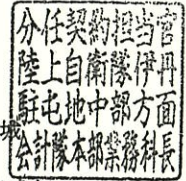 分任契約担当官
陸上自衛隊伊丹
駐屯地中部方面
会計隊本部業務科長
城